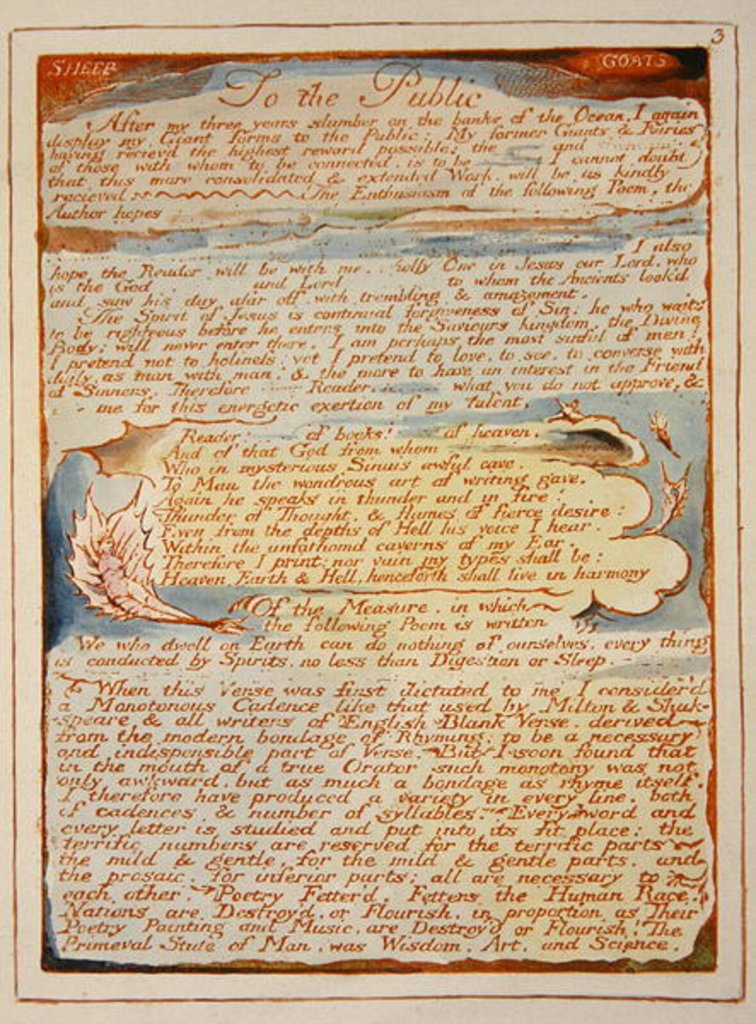 3
SHEEP
GOATS
To the Public
After my three years slumber on the banks of the Ocean, I again
display my Giant forms to the Public: My former Giants & Fairies
having reciev'd the highest reward possible: the and
of those with whom to be connected, is to be I cannot doubt
that this more consolidated & extended Work, will be as kindly
recieved The Enthusiasm of the following Poem, the
Author hopes
I also
hope the Reader will be with me, wholly One in Jesus our Lord, who
is the God and Lord to whom the Ancients look'd
and saw his day afar off, with trembling & amazement.
The Spirit of Jesus is continual forgiveness of Sin: he who waits
to be righteous before he enters into the Saviours kingdom, the Divine
Body; will never enter there. I am perhaps the most sinful of men!
I pretend not to holiness! yet I pretend to love, to see, to converse with
daily, as man with man, & the more to have an interest in the Friend
of Sinners. Therefore Reader, what you do not approve, &
me for this energetic exertion of my talent.
Reader! of books! of heaven,
And of that God from whom
Who in mysterious Sinais awful cave,
To Man the wondrous art of writing gave,
Again he speaks in thunder and in fire!
Thunder of Thought, & flames of fierce desire:
Even from the depths of Hell his voice I hear,
Within the unfathomd caverns of my Ear.
Therefore I print; nor vain my types shall be:
Heaven, Earth & Hell, henceforth shall live in harmony
Of the Measure, in which
the following Poem is written
We who dwell on Earth can do nothing of ourselves, every thing
is conducted by Spirits, no less than Digestion or Sleep.
When this Verse was first dictated to me I consider'd
a Monotonous Cadence like that used by Milton & Shak-
speare & all writers of English Blank Verse, derived
from the modern bondage of Rhyming; to be a necessary
and indispensible part of Verse. But I soon found that
in the mouth of a true Orator such monotony was not
only awkward, but as much a bondage as rhyme itself.
I therefore have produced a variety in every line, both
of cadences & number of syllables. Every word and
every letter is studied and put into its fit place: the
terrific numbers are reserved for the terrific parts
the mild & gentle, for the mild & gentle parts, and
the prosaic, for inferior parts: all are necessary to
each other. Poetry Fetter'd, Fetters the Human Race!
Nations are Destroy'd, or Flourish, in proportion as Their
Poetry Painting and Music, are Destroy'd or Flourish! The
Primeval State of Man, was Wisdom, Art, and Science.